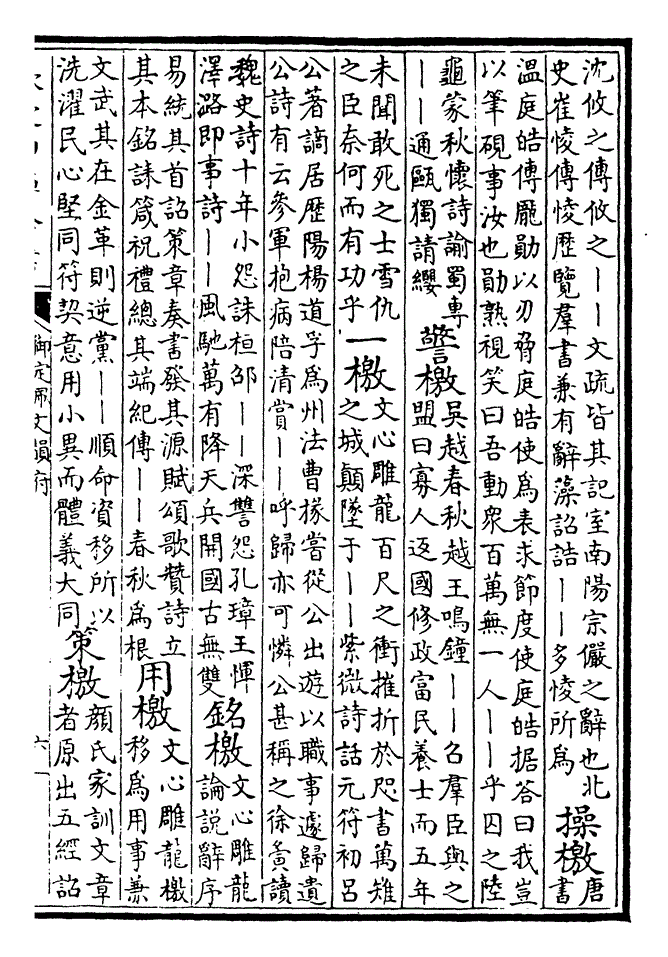 沈攸之傳攸之——文疏皆其記室南陽宗儼之辭也北
史崔㥄傳㥄歷覽羣書兼有辭藻詔誥——多㥄所為
操檄
唐
書
溫庭皓傳龎勛以刃脅庭皓使為表求節度使庭皓据答曰我豈
以筆硯事汝也勛熟視笑曰吾動衆百萬無一人——乎囚之陸
龜蒙秋懷詩諭蜀專
——通甌獨請纓
警檄
吳越春秋越王鳴鐘——召羣臣與之
盟曰寡人返國修政富民養士而五年
未聞敢死之士雪仇
之臣奈何而有功乎
一檄
文心雕龍百尺之衝摧折於咫書萬雉
之城顛墜于——紫微詩話元符初呂
公著謫居歷陽楊道孚為州法曹掾嘗從公出遊以職事遽歸遺
公詩有云參軍抱病陪清賞——呼歸亦可憐公甚稱之徐賁讀
魏史詩十年小怨誅桓邵——深讐怨孔璋王惲
澤潞即事詩——風馳萬有降天兵開國古無雙
銘檄
文心雕龍
論說辭序
易統其首詔策章奏書發其源賦頌歌贊詩立
其本銘誄箴祝禮總其端紀傳——春秋為根
用檄
文心雕龍檄
移為用事兼
文武其在金革則逆黨——順命資移所以
洗濯民心堅同符契意用小異而體義大同
策檄
顏氏家訓文章
者原出五經詔
御定佩文韻府
六